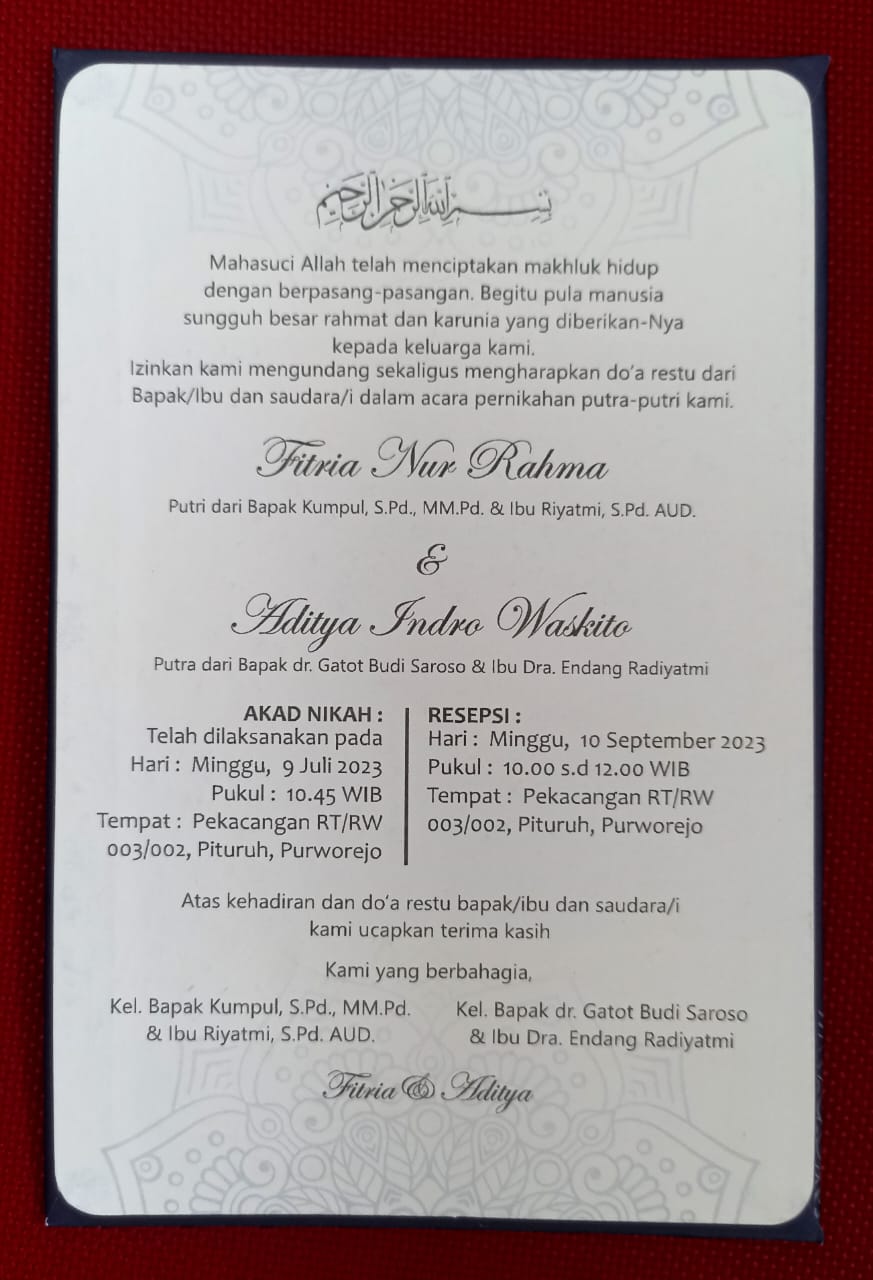 بسم الله الرحمن الرحيم
Mahasuci Allah telah menciptakan makhluk hidup
dengan berpasang-pasangan. Begitu pula manusia
sungguh besar rahmat dan karunia yang diberikan-Nya
kepada keluarga kami.
Izinkan kami mengundang sekaligus mengharapkan do'a restu dari
Bapak/Ibu dan saudara/i dalam acara pernikahan putra-putri kami.
Fitria Nur Rahma
Putri dari Bapak Kumpul, S.Pd., MM.Pd. & Ibu Riyatmi, S.Pd. AUD.
&
Aditya Indro Waskito
Putra dari Bapak dr. Gatot Budi Saroso & Ibu Dra. Endang Radiyatmi
AKAD NIKAH :
Telah dilaksanakan pada
Hari : Minggu, 9 Juli 2023
Pukul : 10.45 WIB
Tempat : Pekacangan RT/RW
003/002, Pituruh, Purworejo
RESEPSI :
Hari : Minggu, 10 September 2023
Pukul : 10.00 s.d 12.00 WIB
Tempat : Pekacangan RT/RW
003/002, Pituruh, Purworejo
Atas kehadiran dan do'a restu bapak/ibu dan saudara/i
kami ucapkan terima kasih
Kami yang berbahagia,
Kel. Bapak Kumpul, S.Pd., MM.Pd.
& Ibu Riyatmi, S.Pd. AUD.
Kel. Bapak dr. Gatot Budi Saroso
& Ibu Dra. Endang Radiyatmi
Fitria & Aditya